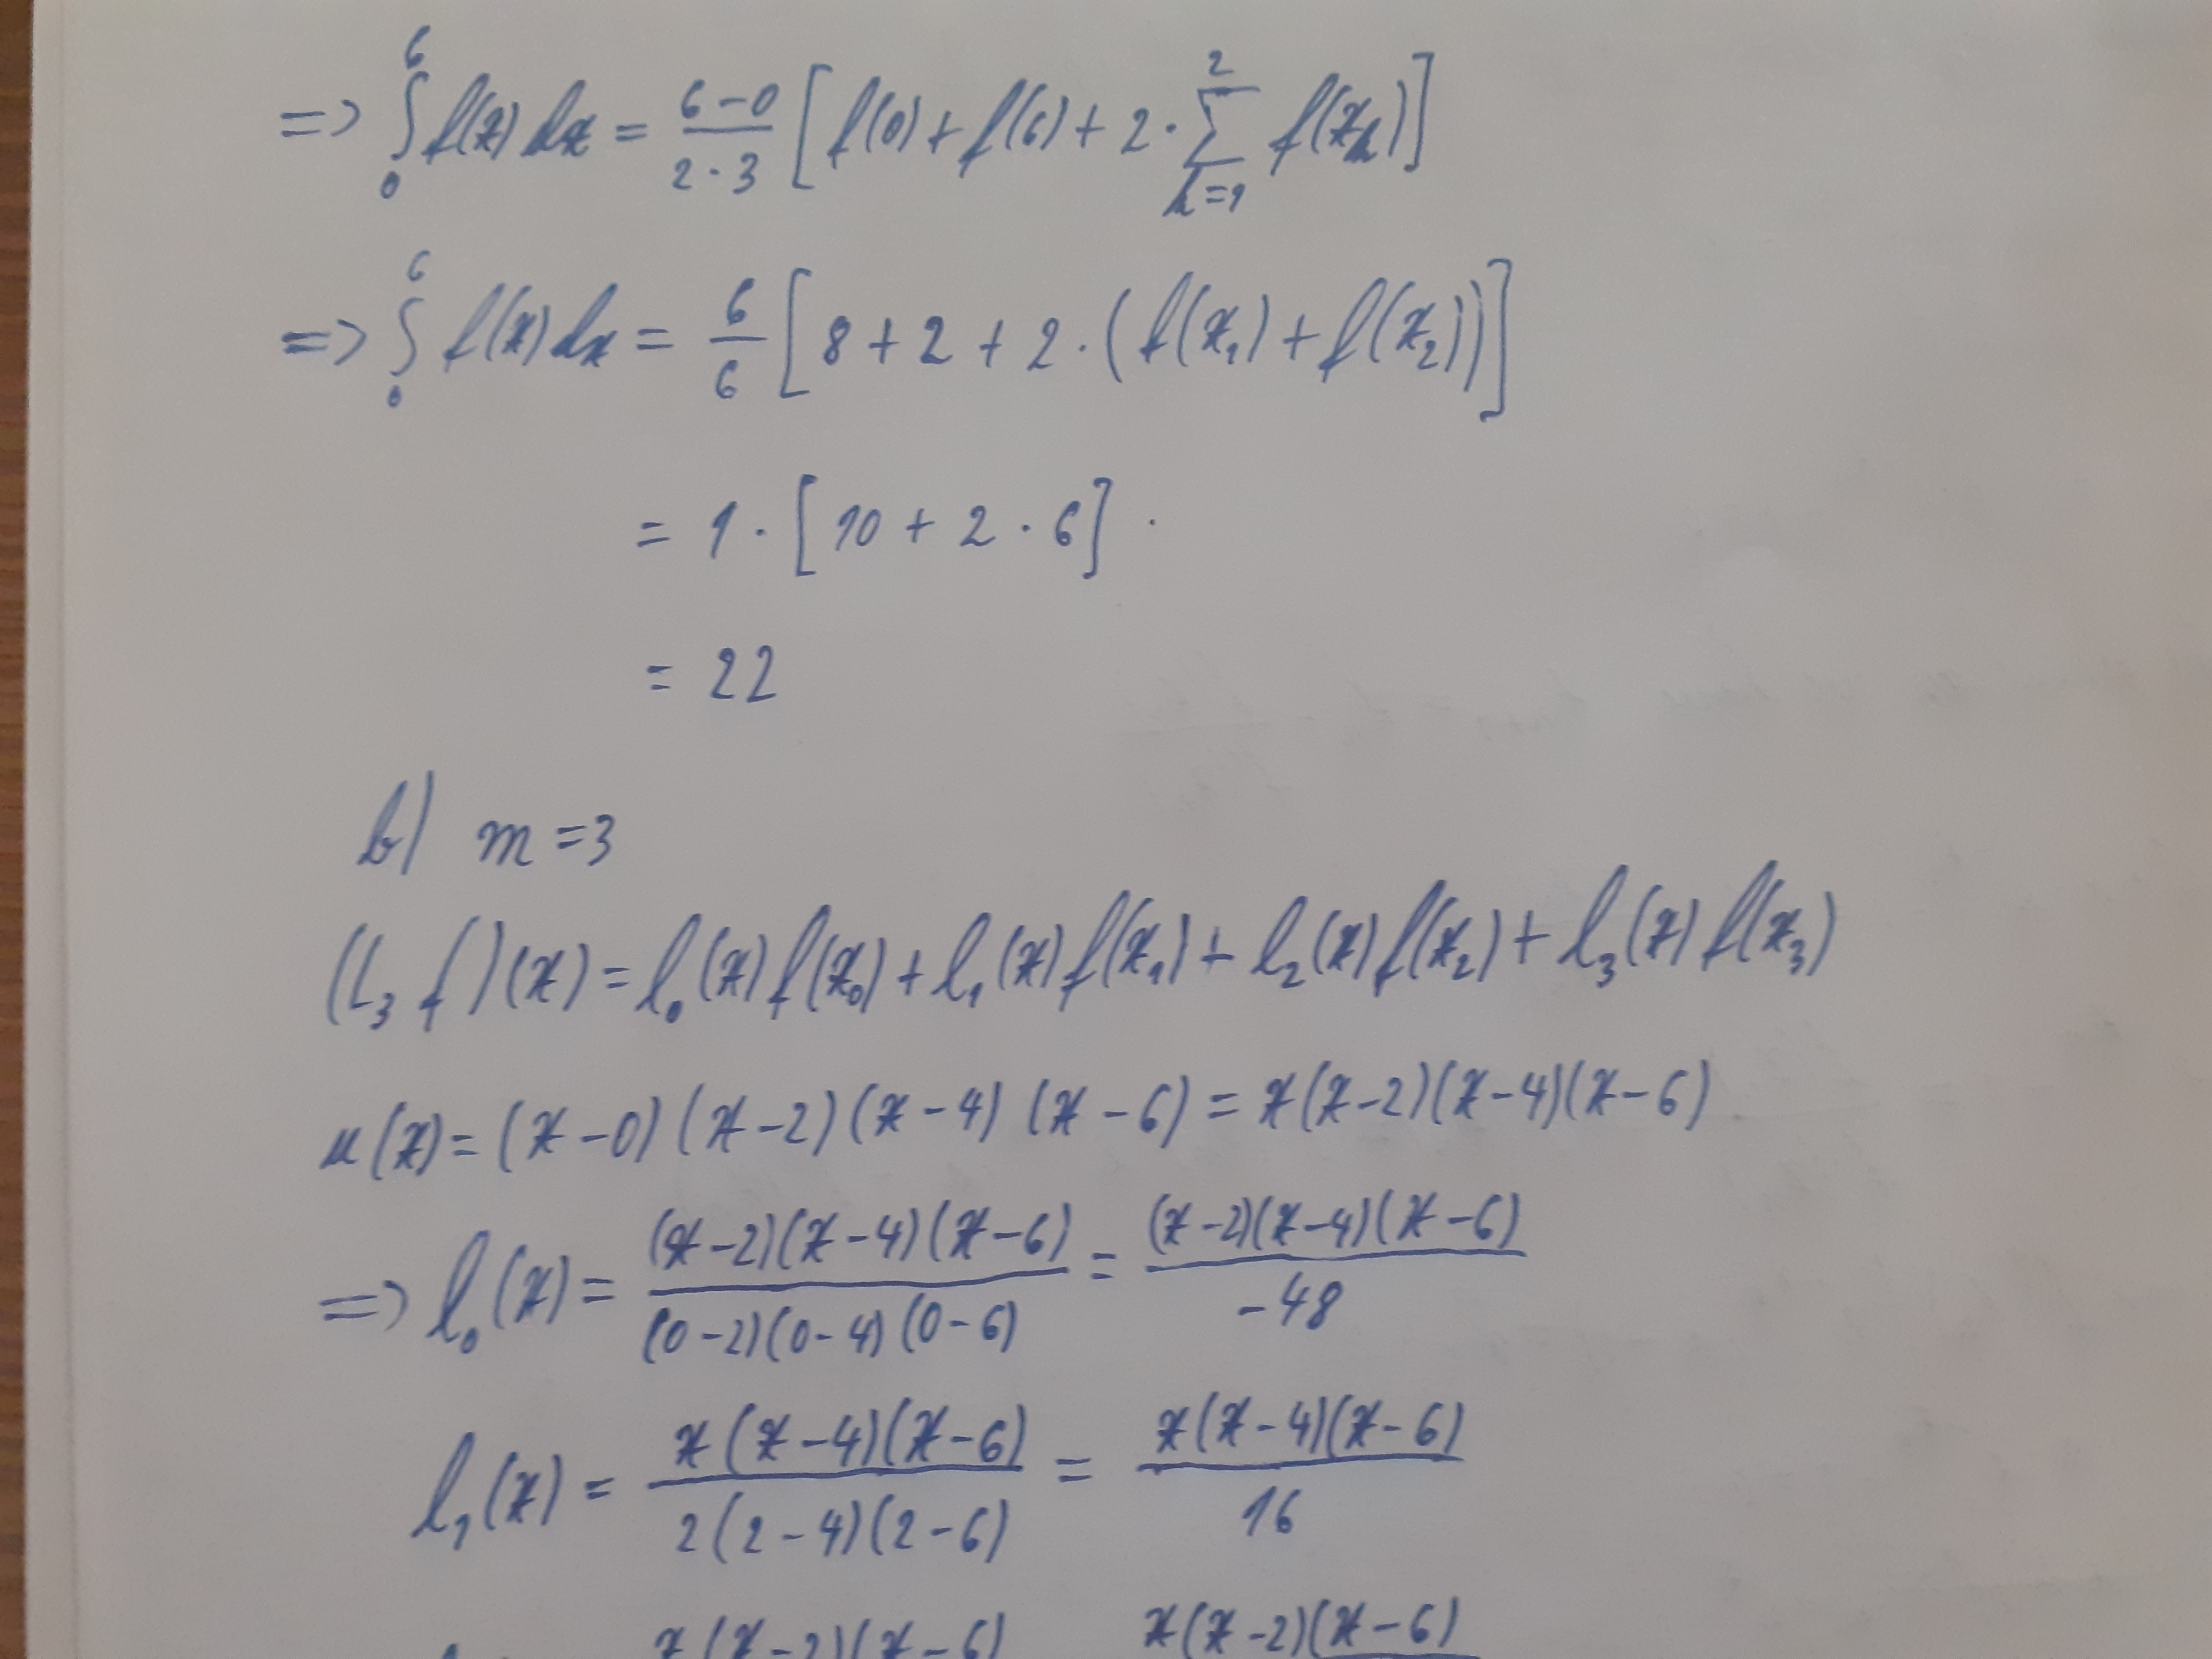 => ∫₀⁶ f(x) dx = (6-0)/(2·3) [f(0) + f(6) + 2·∑_{k=1}^{2} f(x_k)]
=> ∫₀⁶ f(x) dx = 6/6 [8 + 2 + 2·(f(x₁) + f(x₂))]
= 1·[10 + 2·6]·
= 22
b) m = 3
(L₃ f)(x) = l₀(x) f(x₀) + l₁(x) f(x₁) + l₂(x) f(x₂) + l₃(x) f(x₃)
u(x) = (x-0)(x-2)(x-4)(x-6) = x(x-2)(x-4)(x-6)
=> l₀(x) = (x-2)(x-4)(x-6)/(0-2)(0-4)(0-6) = (x-2)(x-4)(x-6)/-48
l₁(x) = x(x-4)(x-6)/2(2-4)(2-6) = x(x-4)(x-6)/16
x(x-2)(x-6) x(x-2)(x-6)